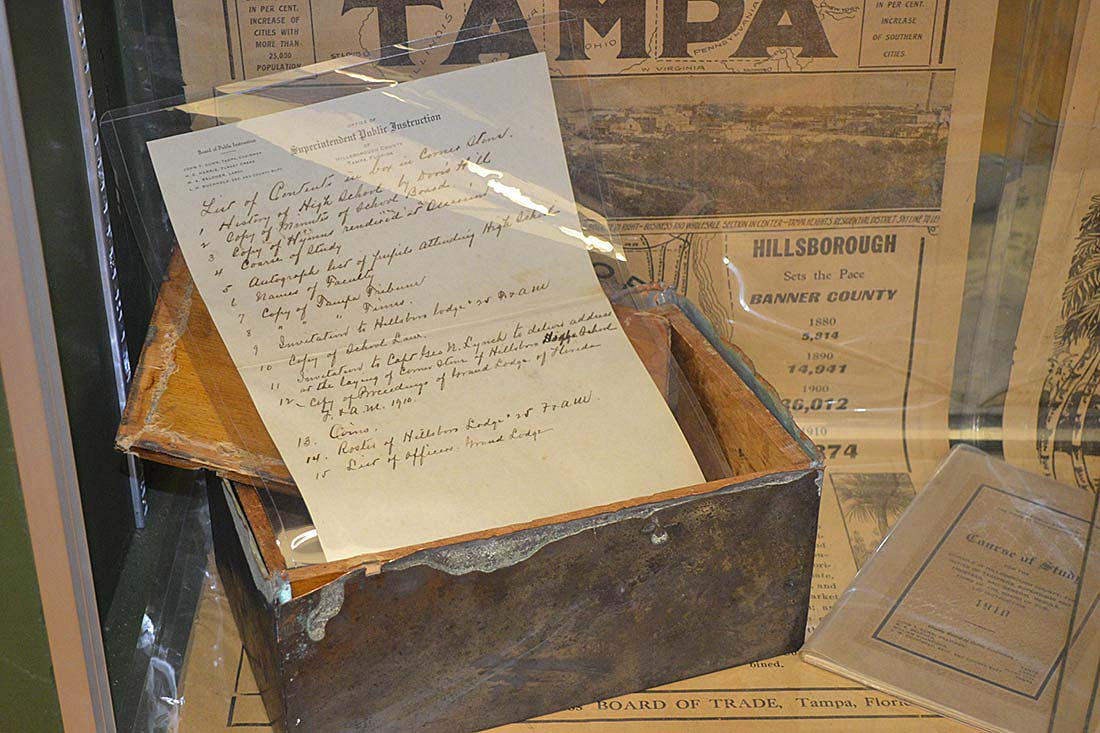 IN PER CENT.
INCREASE OF
CITIES WITH
MORE THAN
25,000
POPULATION
TAMPA
ST. LOUIS
ILLINOIS
OHIO
PENNSYLVANIA
W. VIRGINIA
NEW YORK
IN PER CENT.
INCREASE
OF SOUTHERN
CITIES.
RIGHT - BUSINESS AND WHOLESALE SECTION IN CENTER - TAMPA HEIGHTS RESIDENTIAL DISTRICT SKY LINE TO LEF
HILLSBOROUGH
Sets the Pace
BANNER COUNTY
1880
5,814
1890
14,941
1900
36,012
1910
874
OFFICE OF
Superintendent Public Instruction
OF
HILLSBOROUGH COUNTY
TAMPA, FLORIDA
Board of Public Instruction
List of Contents in box in Corner Stone.
1 History of High School by Doris Hill
2 Copy of Minutes of School Board
3 Copy of Hymns rendered at
4 Course of Study
5 Autograph list of pupils attending High School
6 Names of Faculty
7 Copy of Tampa Tribune
8 " " " Times.
9 Invitation to Hillsboro Lodge #25 F. & A M
10 Copy of School Laws.
11 Invitation to Capt Geo N. Lynch to deliver address
at the laying of Corner Stone of Hillsboro High School
12 - Copy of Proceedings of Grand Lodge of Florida
F. & A. M. 1910.
13. Coins.
14. Roster of Hillsboro Lodge #25 F & AM.
15 List of officers Grand Lodge
Course of Study
FOR THE
1910
and
market
bined.
BOARD OF TRADE, Tampa, Flori